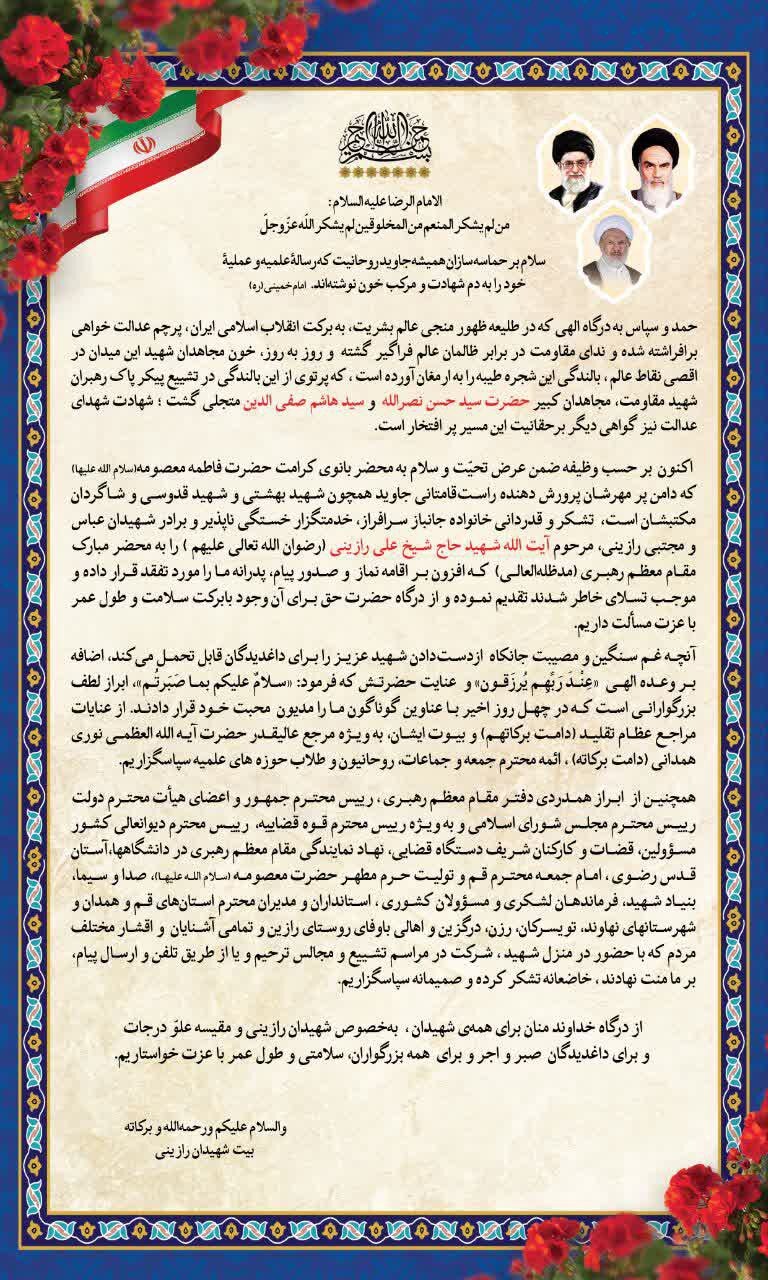 بسم الله الرحمن الرحیم
الامام الرضا علیه السلام:
من لم یشکر المنعم من المخلوقین لم یشکر الله عزّوجلّ
سلام بر حماسه‌سازان همیشه جاوید روحانیت که رسالهٔ علمیه و عملیهٔ
خود را به دم شهادت و مرکب خون نوشته‌اند. امام خمینی (ره)
حمد و سپاس به درگاه الهی که در طلیعه ظهور منجی عالم بشریت، به برکت انقلاب اسلامی ایران، پرچم عدالت خواهی
برافراشته شده و ندای مقاومت در برابر ظالمان عالم فراگیر گشته و روز به روز، خون مجاهدان شهید این میدان در
اقصی نقاط عالم، بالندگی این شجره طیبه را به ارمغان آورده است، که پرتوی از این بالندگی در تشییع پیکر پاک رهبران
شهید مقاومت، مجاهدان کبیر حضرت سید حسن نصرالله و سید هاشم صفی الدین متجلی گشت؛ شهادت شهدای
عدالت نیز گواهی دیگر برحقانیت این مسیر پر افتخار است.
اکنون بر حسب وظیفه ضمن عرض تحیّت و سلام به محضر بانوی کرامت حضرت فاطمه معصومه(سلام الله علیها)
که دامن پر مهرشان پرورش دهنده راست‌قامتانی جاوید همچون شهید بهشتی و شهید قدوسی و شاگردان
مکتبشان است، تشکر و قدردانی خانواده جانباز سرافراز، خدمتگزار خستگی ناپذیر و برادر شهیدان عباس
و مجتبی رازینی، مرحوم آیت الله شهید حاج شیخ علی رازینی (رضوان الله تعالی علیهم) را به محضر مبارک
مقام معظم رهبری (مدظله‌العالی) که افزون بر اقامه نماز و صدور پیام، پدرانه ما را مورد تفقد قرار داده و
موجب تسلای خاطر شدند تقدیم نموده و از درگاه حضرت حق برای آن وجود بابرکت سلامت و طول عمر
با عزت مسألت داریم.
آنچه غم سنگین و مصیبت جانکاه ازدست‌دادن شهید عزیز را برای داغدیدگان قابل تحمل می‌کند، اضافه
بر وعده الهی «عِنْدَ رَبِّهِم یُرزَقون» و عنایت حضرتش که فرمود: «سلامٌ علیکم بما صَبَرتُم»، ابراز لطف
بزرگوارانی است که در چهل روز اخیر با عناوین گوناگون ما را مدیون محبت خود قرار دادند. از عنایات
مراجع عظام تقلید (دامت برکاتهم) و بیوت ایشان، به ویژه مرجع عالیقدر حضرت آیه الله العظمی نوری
همدانی (دامت برکاته)، ائمه محترم جمعه و جماعات، روحانیون و طلاب حوزه های علمیه سپاسگزاریم.
همچنین از ابراز همدردی دفتر مقام معظم رهبری، رییس محترم جمهور و اعضای هیأت محترم دولت
رییس محترم مجلس شورای اسلامی و به ویژه رییس محترم قوه قضاییه، رییس محترم دیوانعالی کشور
مسؤولین، قضات و کارکنان شریف دستگاه قضایی، نهاد نمایندگی مقام معظم رهبری در دانشگاهها،آستان
قدس رضوی، امام جمعه محترم قم و تولیت حرم مطهر حضرت معصومه (سلام الله علیها)، صدا و سیما،
بنیاد شهید، فرماندهان لشکری و مسؤولان کشوری، استانداران و مدیران محترم استان‌های قم و همدان و
شهرستانهای نهاوند، تویسرکان، رزن، درگزین و اهالی باوفای روستای رازین و تمامی آشنایان و اقشار مختلف
مردم که با حضور در منزل شهید، شرکت در مراسم تشییع و مجالس ترحیم و یا از طریق تلفن و ارسال پیام،
بر ما منت نهادند، خاضعانه تشکر کرده و صمیمانه سپاسگزاریم.
از درگاه خداوند منان برای همه‌ی شهیدان، به‌خصوص شهیدان رازینی و مقیسه علوّ درجات
و برای داغدیدگان صبر و اجر و برای همه بزرگواران، سلامتی و طول عمر با عزت خواستاریم.
والسلام علیکم ورحمه‌الله و برکاته
بیت شهیدان رازینی